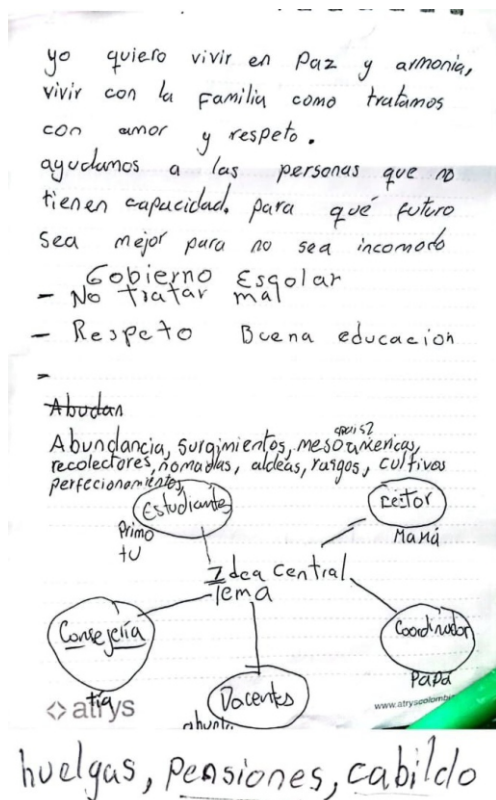 yo quiero vivir en Paz y armonia,
vivir con la Familia como tratamos
con amor y respeto.
ayudamos a las personas que no
tienen capacidad. para qué futuro
sea mejor para no sea incomodo
Gobierno Esgolar
- No tratar mal
- Respeto Buena educacion
-
Abudan
Abundancia, surgimientos, mesoamericas,
recolectores, nomadas, aldeas, rasgos, cultivos
perfecionamientos,
Estudiantes
Primo
tu
Mamá
Idea Central
Tema
Consejeria
tía
Docentes
Coordinador
Papá
atrys
huelgas, pensiones, cabildo